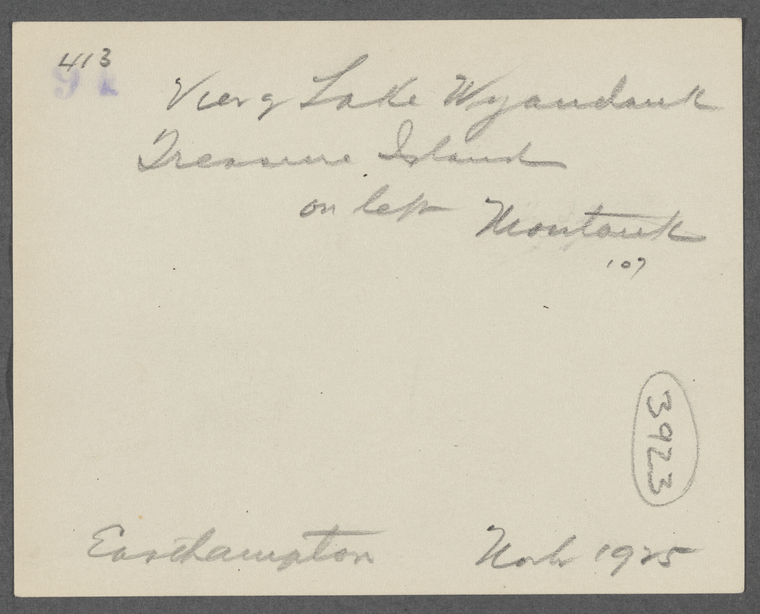 413
91
View of Lake Wyandank
Treasure Island
on left Montauk
107
3923
Easthampton Nov 1925